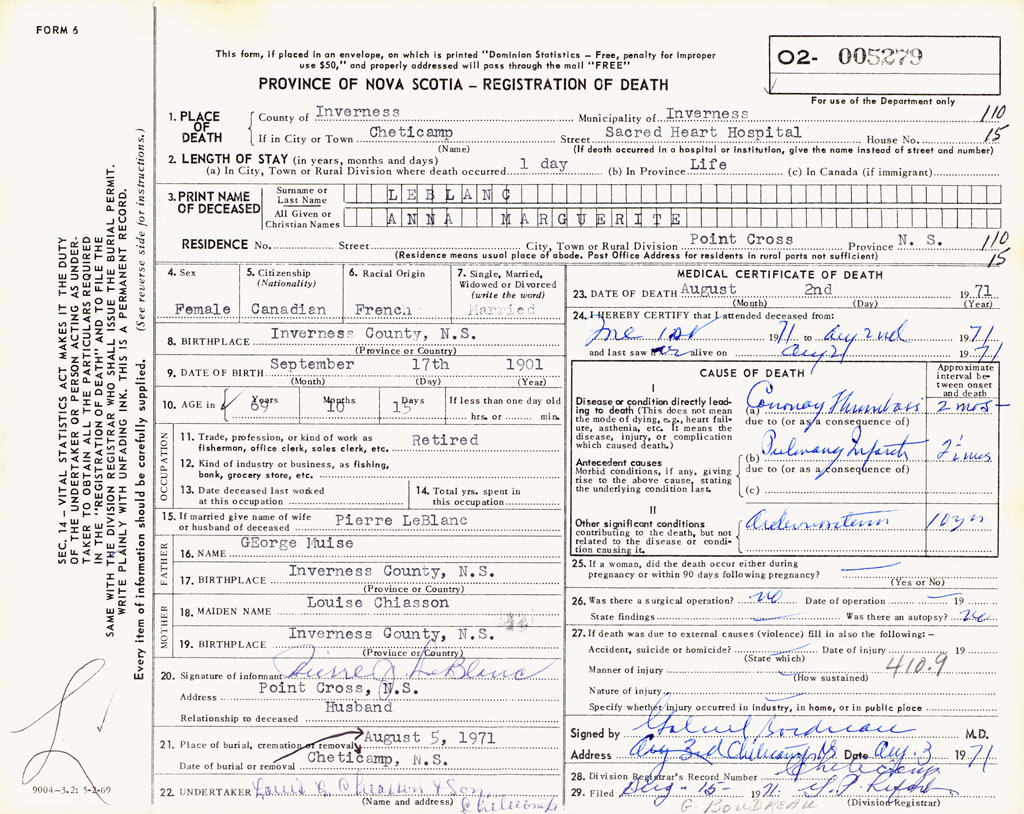 FORM 6
This form, if placed in an envelope, on which is printed "Dominion Statistics – Free, penalty for improper
use $50," and properly addressed will pass through the mail "FREE"
02- 005279
For use of the Department only
PROVINCE OF NOVA SCOTIA – REGISTRATION OF DEATH
1. PLACE OF DEATH County of Inverness Municipality of Inverness 110
If in City or Town Cheticamp Street Sacred Heart Hospital House No. 15
(Name) (If death occurred in a hospital or Institution, give the name instead of street and number)
2. LENGTH OF STAY (in years, months and days)
(a) In City, Town or Rural Division where death occurred 1 day (b) In Province Life (c) In Canada (if immigrant)
3. PRINT NAME OF DECEASED Surname or Last Name LEBLANC
All Given or Christian Names ANNA MARGUERITE
RESIDENCE No. Street City, Town or Rural Division Point Cross Province N. S. 110
(Residence means usual place of abode. Post Office Address for residents in rural parts not sufficient) 15
4. Sex Female
5. Citizenship (Nationality) Canadian
6. Racial Origin French
7. Single, Married, Widowed or Divorced (write the word) Married
8. BIRTHPLACE Inverness County, N.S.
(Province or Country)
9. DATE OF BIRTH September 17th 1901
(Month) (Day) (Year)
10. AGE in Years Months Days If less than one day old
69 10 15 hrs. or min.
OCCUPATION
11. Trade, profession, or kind of work as fisherman, office clerk, sales clerk, etc. Retired
12. Kind of industry or business, as fishing, bank, grocery store, etc.
13. Date deceased last worked at this occupation
14. Total yrs. spent in this occupation
15. If married give name of wife or husband of deceased Pierre LeBlanc
FATHER
16. NAME GEorge Muise
17. BIRTHPLACE Inverness County, N.S.
(Province or Country)
MOTHER
18. MAIDEN NAME Louise Chiasson
19. BIRTHPLACE Inverness County, N.S.
(Province or Country)
20. Signature of informant Pierre J LeBlanc
Address Point Cross, N.S.
Relationship to deceased Husband
21. Place of burial, cremation or removal August 5, 1971
Date of burial or removal Cheticamp, N.S.
22. UNDERTAKER Louis G. Chiasson & Son,
(Name and address) Cheticamp
MEDICAL CERTIFICATE OF DEATH
23. DATE OF DEATH August 2nd 1971
(Month) (Day) (Year)
24. I HEREBY CERTIFY that I attended deceased from:
1st 1971 to Aug 2nd 1971
and last saw her alive on 1971
CAUSE OF DEATH
Approximate interval between onset and death
I
Disease or condition directly leading to death (This does not mean the mode of dying, e.g., heart failure, asthenia, etc. It means the disease, injury, or complication which caused death.)
(a) Coronary Thrombosis 2 mos
due to (or as a consequence of)
Antecedent causes
Morbid conditions, if any, giving rise to the above cause, stating the underlying condition last.
(b) Pulmonary Infarct
due to (or as a consequence of)
(c)
II
Other significant conditions contributing to the death, but not related to the disease or condition causing it.
10 yrs
25. If a woman, did the death occur either during pregnancy or within 90 days following pregnancy?
(Yes or No)
26. Was there a surgical operation? No Date of operation 19
State findings Was there an autopsy? No
27. If death was due to external causes (violence) fill in also the following: –
Accident, suicide or homicide? Date of injury 19
(State which)
410.9
Manner of injury
(How sustained)
Nature of injury
Specify whether injury occurred in industry, in home, or in public place
Signed by Gabriel Boudreau M.D.
Address Aug 3rd Cheticamp NS Date Aug. 3 1971
28. Division Registrar's Record Number Cheticamp
29. Filed Aug - 15 - 1971.
(Division Registrar)
G. BOUDREAU
SEC. 14 – VITAL STATISTICS ACT MAKES IT THE DUTY
OF THE UNDERTAKER OR PERSON ACTING AS UNDER-
TAKER TO OBTAIN ALL THE PARTICULARS REQUIRED
IN THE "REGISTRATION OF DEATH" AND TO FILE THE
SAME WITH THE DIVISION REGISTRAR WHO SHALL ISSUE THE BURIAL PERMIT.
WRITE PLAINLY WITH UNFADING INK. THIS IS A PERMANENT RECORD.
Every item of information should be carefully supplied. (See reverse side for instructions.)
9004-3.2: 5-2-69